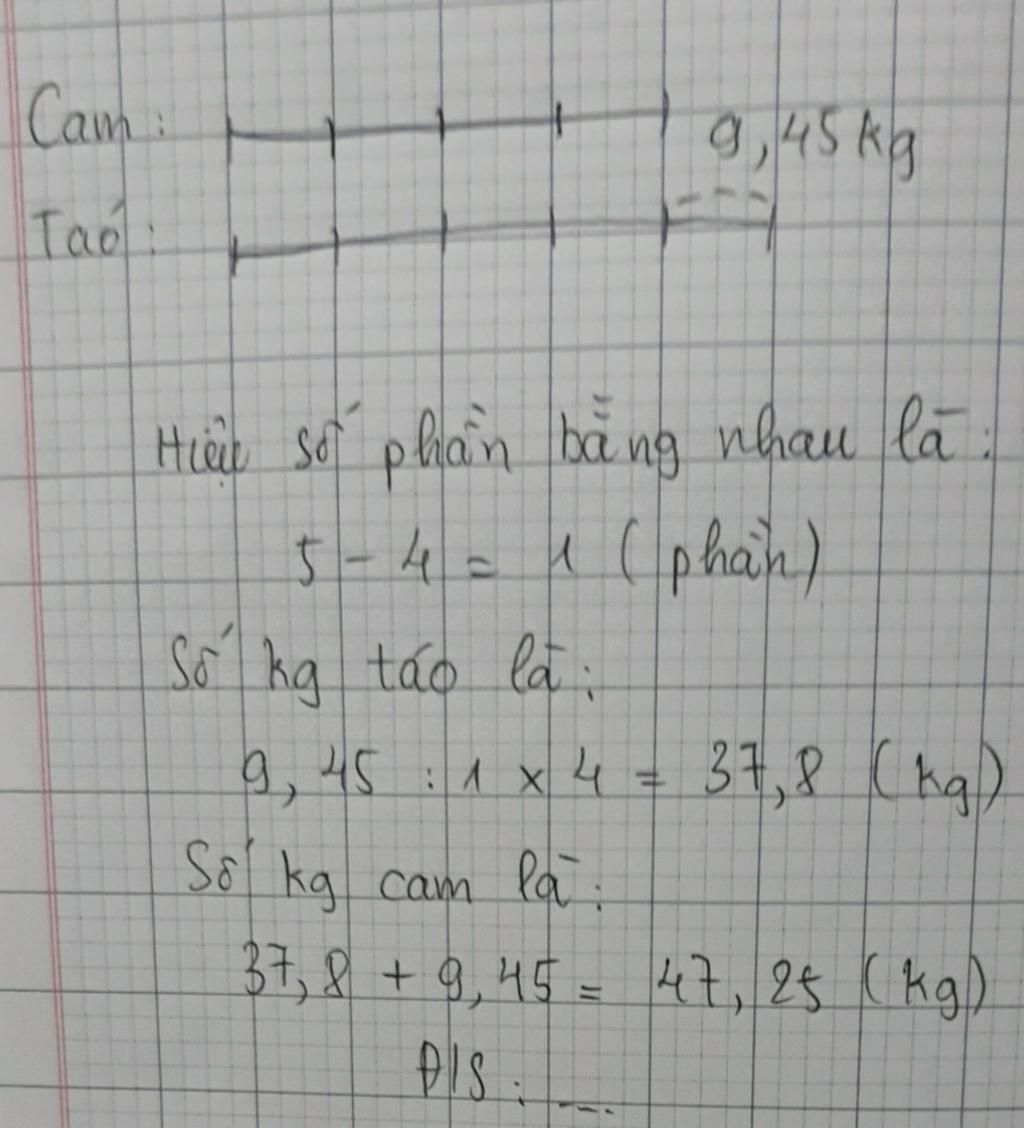 Cam:
9,45 kg
Táo:
Hiệu số phần bằng nhau là:
5 - 4 = 1 (phần)
Số kg táo là:
9,45 : 1 x 4 = 37,8 (kg)
Số kg cam là:
37,8 + 9,45 = 47,25 (kg)
Đ/S: ....